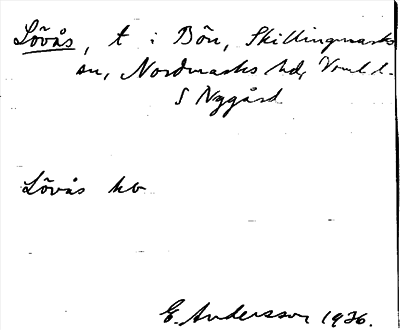 Lövås, t i Bön, Skillingmarks
sn, Nordmarks hd, Vrml l.
S Nygård
Lövås hb
E. Andersson 1926.